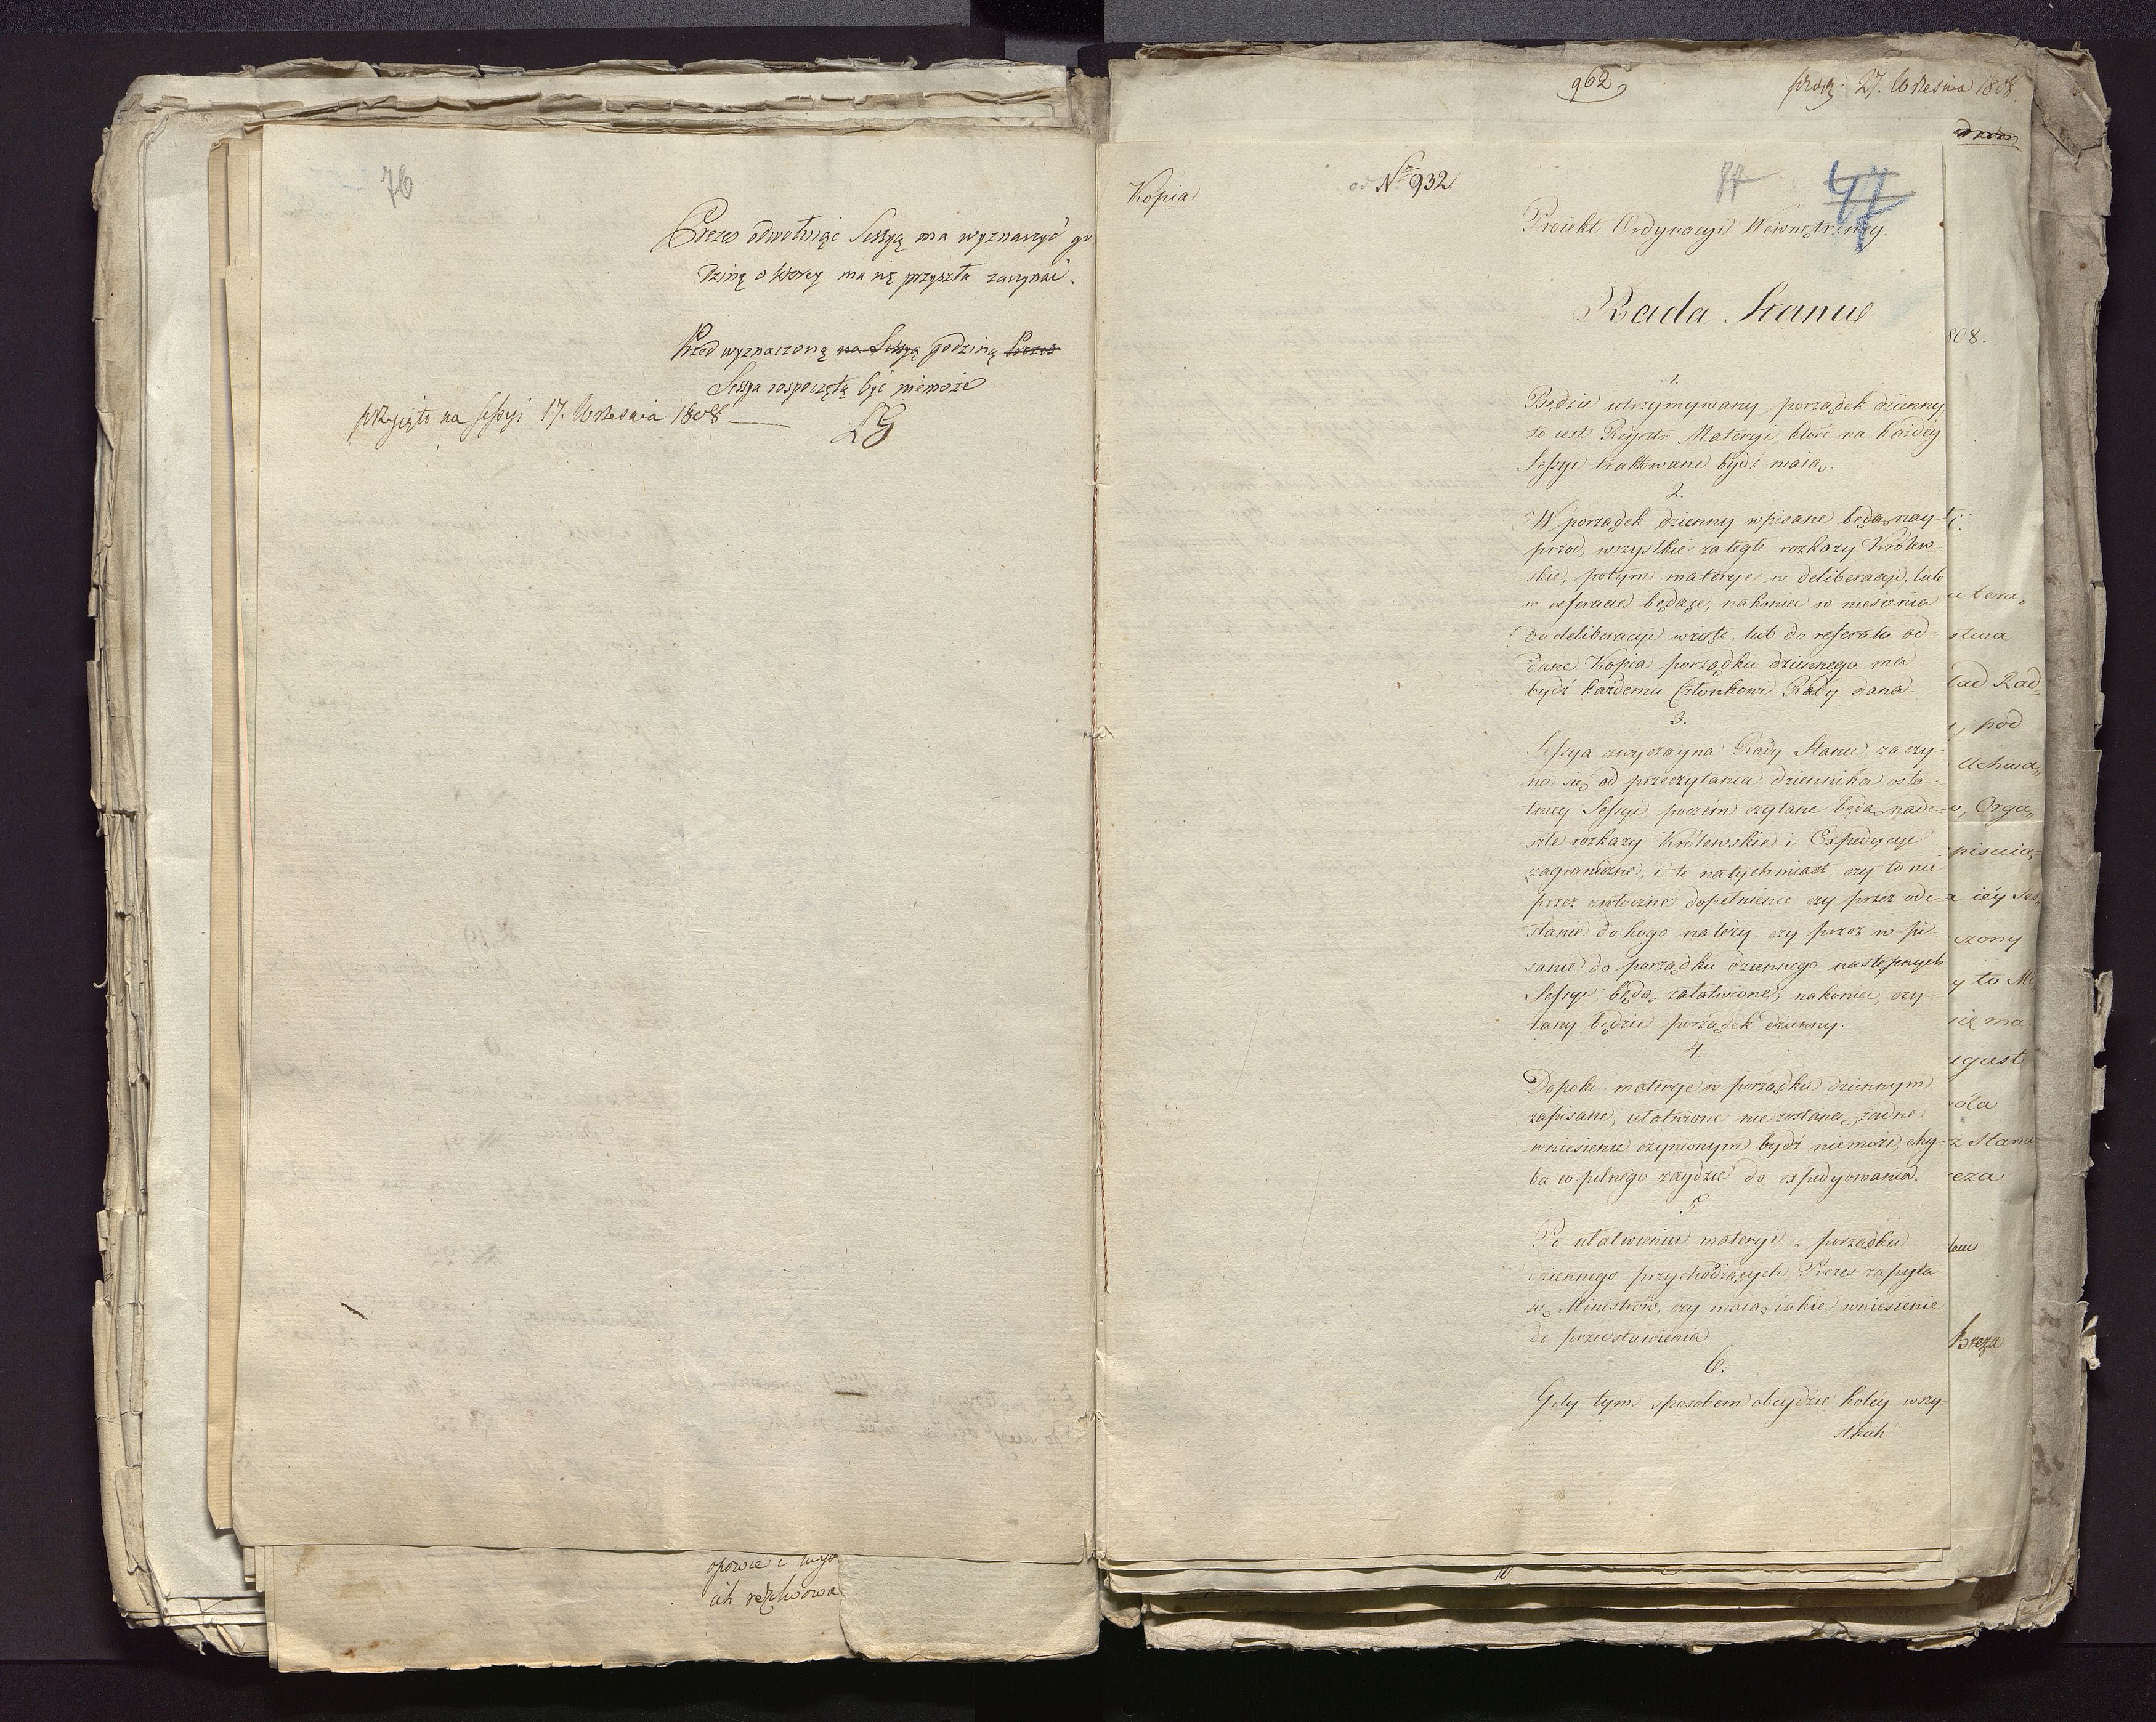 76
Prezes odwołuiąc Sessyą ma wyznaczyć go
dzinę o ktorey ma się przyszła zaczynać.
Przed wyznaczoną na Sessyą godziną Prezes
Sessya rospoczętą być niemoże
przyięto na Sessyi 17. Wrzesnia 1808
opowie i
ich
962
27. Wrzesnia 1808.
Kopia
ad No 932
77
47
Proiekt Ordynacyi Wewnętrzney.
Rada Stanu
1.
Będzie utrzymywany porządek dzienny,
to iest Regestr Materyi, które na każdey
Sessyi traktowane bydź maią.
2.
W porządek dzienny wpisane będą nay-
przod, wszystkie zaległe rozkazy Królew-
skie, potym materye w deliberacyi, lub
w referacie będące, nakoniec w niesienia
do deliberacyi wzięte, lub do referatu od-
dane. Kopia porządku dziennego ma
bydź każdemu Członkowi Rady dana.
3.
Sessya zwyczayna Rady Stanu, zaczy-
na się od przeczytania dziennika osta-
tniey Sessyi, poczém czytane będą nade-
szłe rozkazy Królewskie i Expedycye
zagraniczne, i te natychmiast, czy to nie
przez zwłoczne dopełnienie czy przez ode-
słanie do kogo należy, czy przez w pi-
sanie do porządku dziennego następnych
Sessyi będą załatwione, nakoniec, czy-
tany będzie porządek dzienny.
4.
Dopoki materye w porządku dziennym
zapisane, ułatwione nie zostaną, żadne
wniesienie czynionym bydź niemoże, chy-
ba co pilnego zaydzie do expedyowania.
5.
Po ułatwieniu materyi z porządku
dziennego przychodzących Prezes zapyta
się Ministrów, czy maią iakie wniesienie
do przedstawienia.
6.
Gdy tym sposobem obeydzie koley wszy-
stkich
808.
stwa
ład Rad
pod
Uchwa„
Orga„
iéy Ses„
czony
to Mi
się ma
ugust
óla
z Stanu
reza
Breza